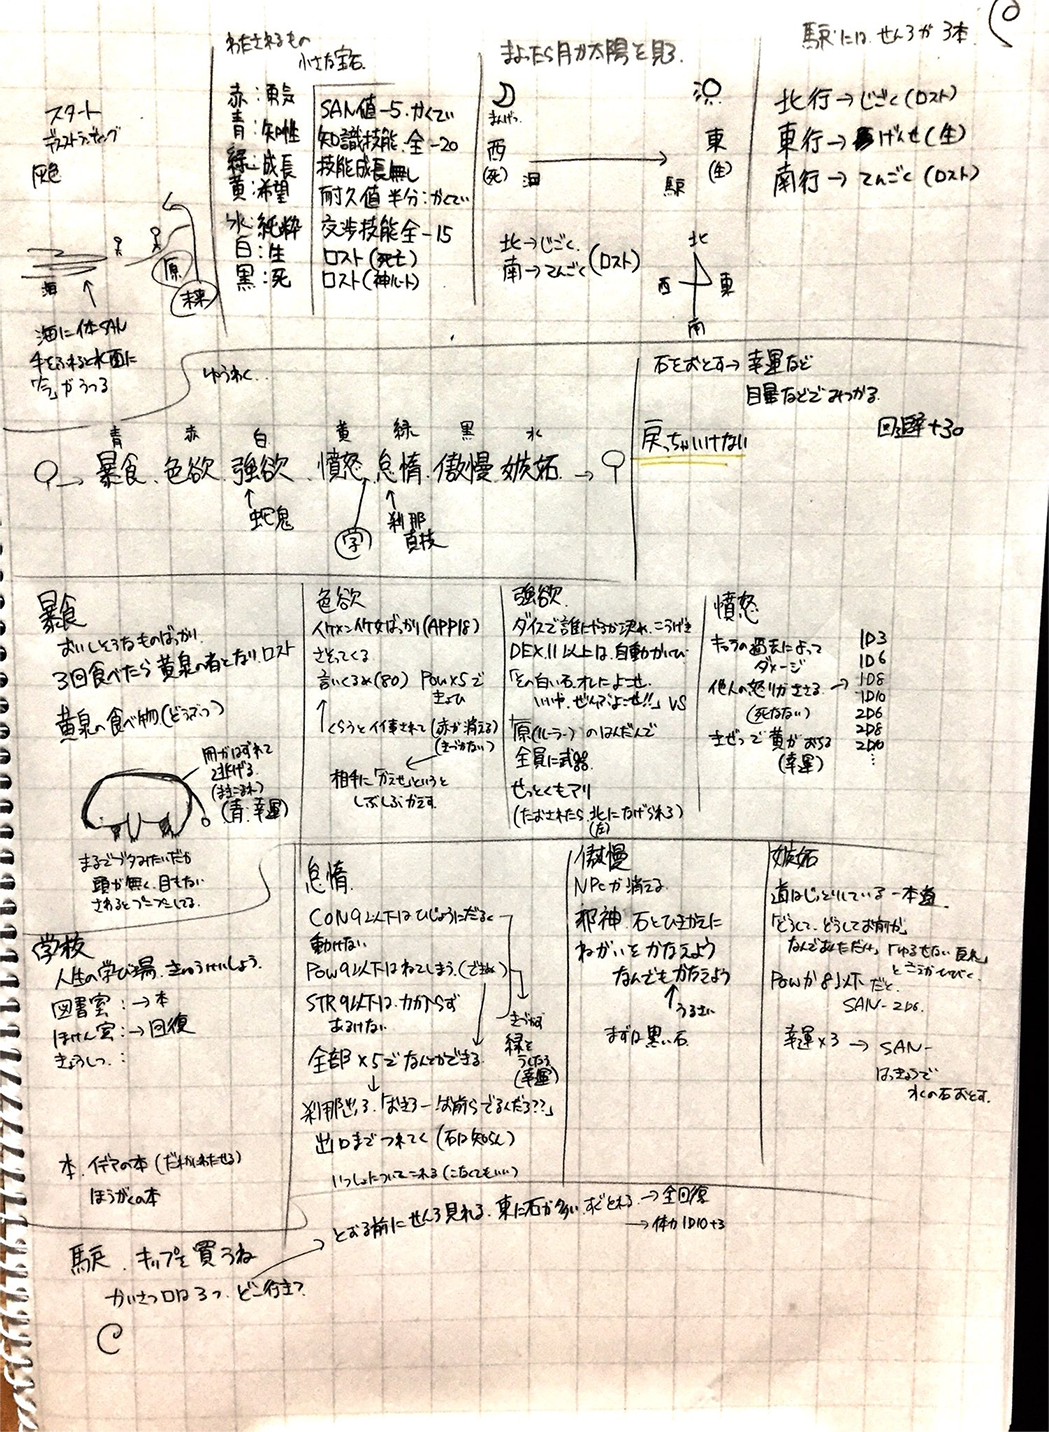 スタート
灰色
海
原
未来
海に体SAN
手をふれると水面に
がうつる
わたされるもの
小さな宝石
赤:勇気
青:知性
緑:成長
黄:希望
水:純粋
白:生
黒:死
SAN値-5.かくてい
知識技能.全-20
技能成長無し
耐久値半分:かくてい
交渉技能全-15
ロスト(死亡)
ロスト(神ルート)
まよったら月か太陽を見る
まんげつ
西
(死)
海
東
(生)
駅
北→じごく
南→てんごく
(ロスト)
北
西
東
南
駅には、せんろが3本
北行→じごく(ロスト)
東行→げんせ(生)
南行→てんごく(ロスト)
ゆうわく..
青 赤 白 黄 緑 黒 水
暴食.色欲.強欲.憤怒.怠惰.傲慢.嫉妬.→
蛇鬼
学
刹那
真枝
石をおとす→幸運など
目星などでみつかる.
回避+30
戻っちゃいけない
暴食
おいしそうなものばっかり.
3回食べたら黄泉の者となり.ロスト
黄泉の食べ物(どうぶつ)
逃げる
(青:幸運)
まるでブタみたいだが
頭が無く.目もない
さわるとプニプニしてる.
色欲
イケメンイケ女ばっかり(APP18)
さそってくる
言いくるめ(80) POW×5で
くらうとイ士事されて(赤が消える)
(きづかない)
相手に「かえせ」というと
しぶしぶかえす.
強欲.
ダイスで誰にやるか決め.こうげき
DEX.11以上は.自動かいひ
「その白い石.オレによこせ.
いいや.ぜんぶよこせ!!」VS
原(ルーラー)のはんだんで
全員に武器
せっとくもアリ
(たおされたら.北になげられる)
(左)
憤怒
キャラの過去によって
ダメージ
他人の怒りがささる.→
(死なない)
きぜつで黄がおちる
(幸運)
1D3
1D6
1D8
1D10
2D6
2D8
2D10
⋮
学校
人生の学び場.きゅうけいしょう.
図書室:→本
ほけん室:→回復
きょうしつ.:
本.イデアの本(だれかにわたせる)
ほうがくの本
怠惰.
CON9以下はひじょうにだるく
動けない
POW9以下はねてしまう.
STR9以下は.力がでず
あるけない
全部×5でなんとかできる.
きづかず
緑を
うしなう
(幸運)
刹那出る.「おきろー!お前らでるんだろ??」
出口までつれてく(石は知らん)
いっしょについてこれる(こなくてもいい)
傲慢
NPCが消える.
邪神.石とひきかえに
ねがいをかなえよう
なんでもかなえよう
うるさい
まずは黒い石.
嫉妬
道はじっとりしている一本道
「どうして、どうしてお前が」
POWが8以下だと.
SAN-2D6.
幸運×3→SAN-
はっきょうで
水の石おとす.
駅.キップを買うね
かいさつ口は3つ.どこ行き?
とおる前にせんろ見れる.東に石が多い.すぐとれる.→全回復
→体力1D10+3